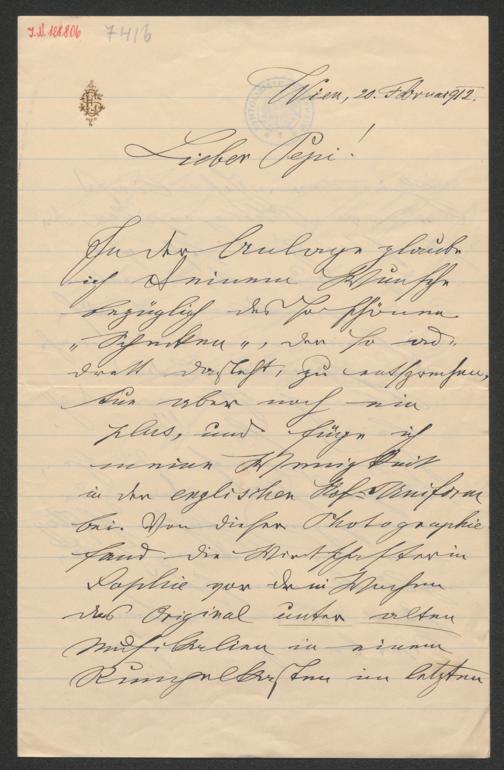 I.N. 188.806
7416
Wien, 20. Februar 912.
Lieber Pepi!
In der Anlage glaube
ich Deinem Wunsche
bezüglich des so schönen
„Schecken“, der so ad-
drett dasteht, zu entsprechen,
tue aber noch ein
plus, und füge ich
meine Wenigkeit
in der englischen Hof-Uniform
bei. Von dieser Photographie
fand die Wirtschafterin
Sophie vor drei Wochen
das Original unter alten
Musikalien in einem
Rumpelkasten im letzten